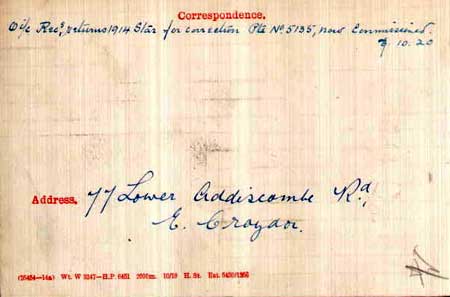 Correspondence.
O i/c Recs returns 1914 Star for correction Pte No. 5135, now Commissioned.
7. 10. 20
Address. 77 Lower Addiscombe Rd,
E. Croydon.
(26454—14a) Wt. W 3247—H.P. 6451 2000m. 10/19 H. St. Est.